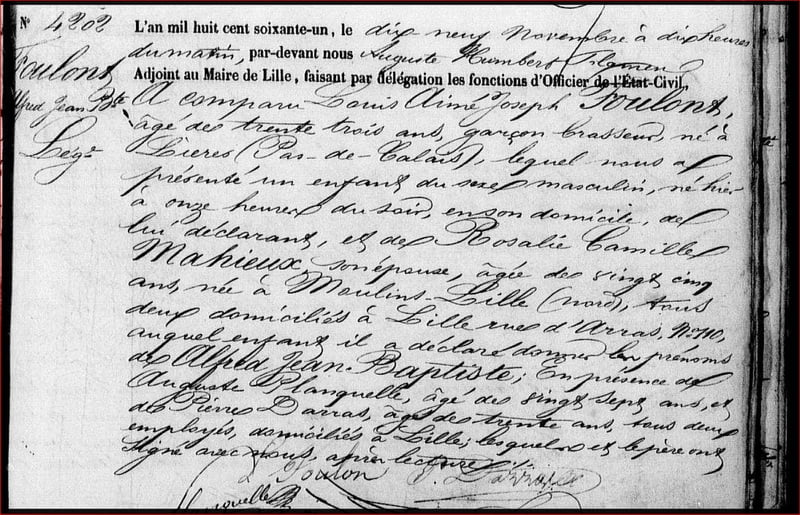 N° 4202
Foulont
Alfred Jean Bte
Lége
L'an mil huit cent soixante-un, le dix neuf Novembre à dix heures
du matin, par-devant nous Auguste Humbert
Adjoint au Maire de Lille, faisant par délégation les fonctions d'Officier de l'Etat-Civil,
A comparu Louis Aimé Joseph Foulont,
âgé de trente trois ans, garçon brasseur, né à
Lieres (Pas-de-Calais), lequel nous a
présenté un enfant du sexe masculin, né hier
à onze heures du soir, en son domicile, de
lui déclarant, et de Rosalie Camille
Mahieux, son épouse, âgée de vingt cinq
ans, née à Moulins-Lille (nord), tous
deux domiciliés à Lille rue d'Arras, N° 110,
auquel enfant il a déclaré donner les prénoms
de Alfred Jean-Baptiste; En présence de
Auguste Planquelle, âgé de vingt sept ans, et
de Pierre Darras, âgé de trente ans, tous deux
employés, domiciliés à Lille; lesquels et le père ont
signé avec nous, après lecture.
L. Foulon P. Darras